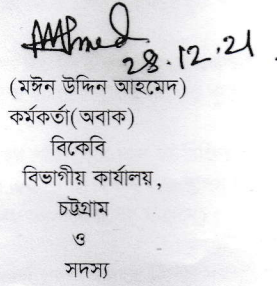 28.12.21
(মঈন উদ্দিন আহমেদ)
কর্মকর্তা(অবাক)
বিকেবি
বিভাগীয় কার্যালয়,
চট্টগ্রাম
ও
সদস্য